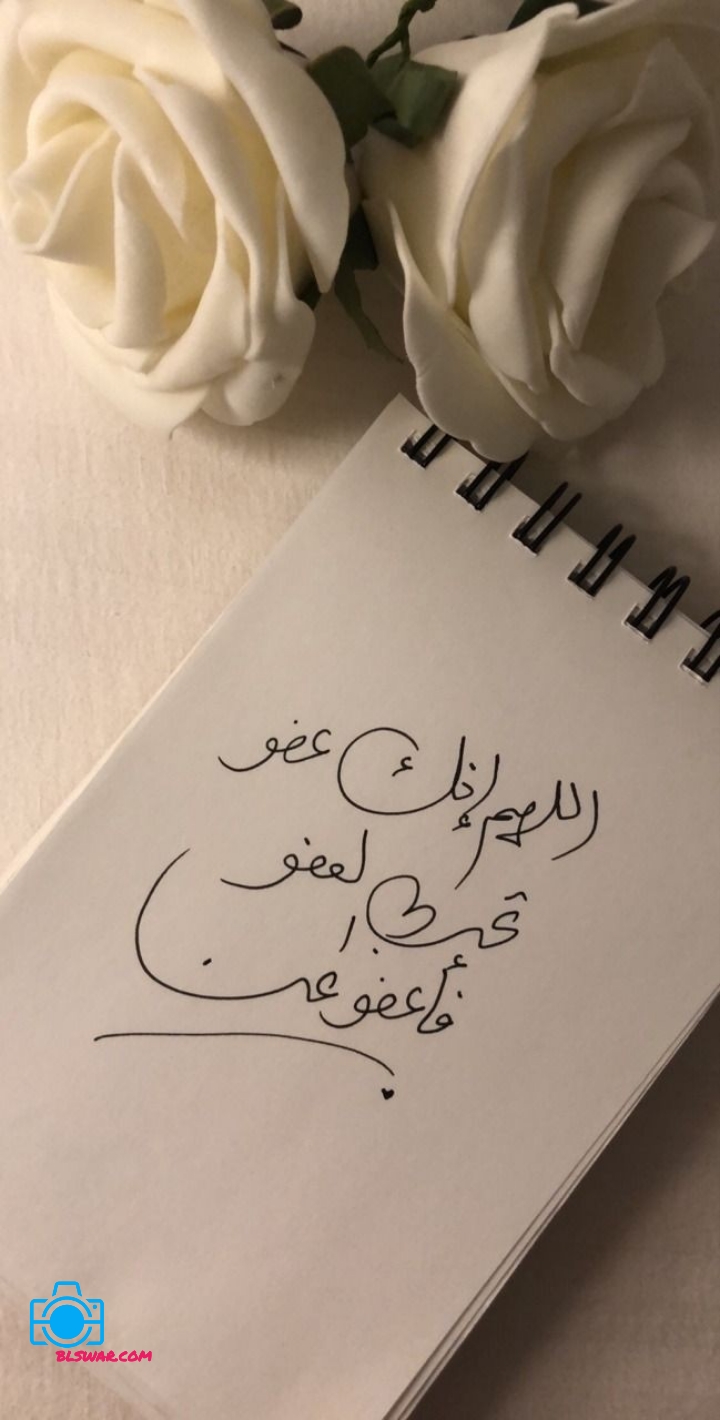 اللهم إنك عفو
تحب العفو
فأعفو عنا
BLSWAR.COM